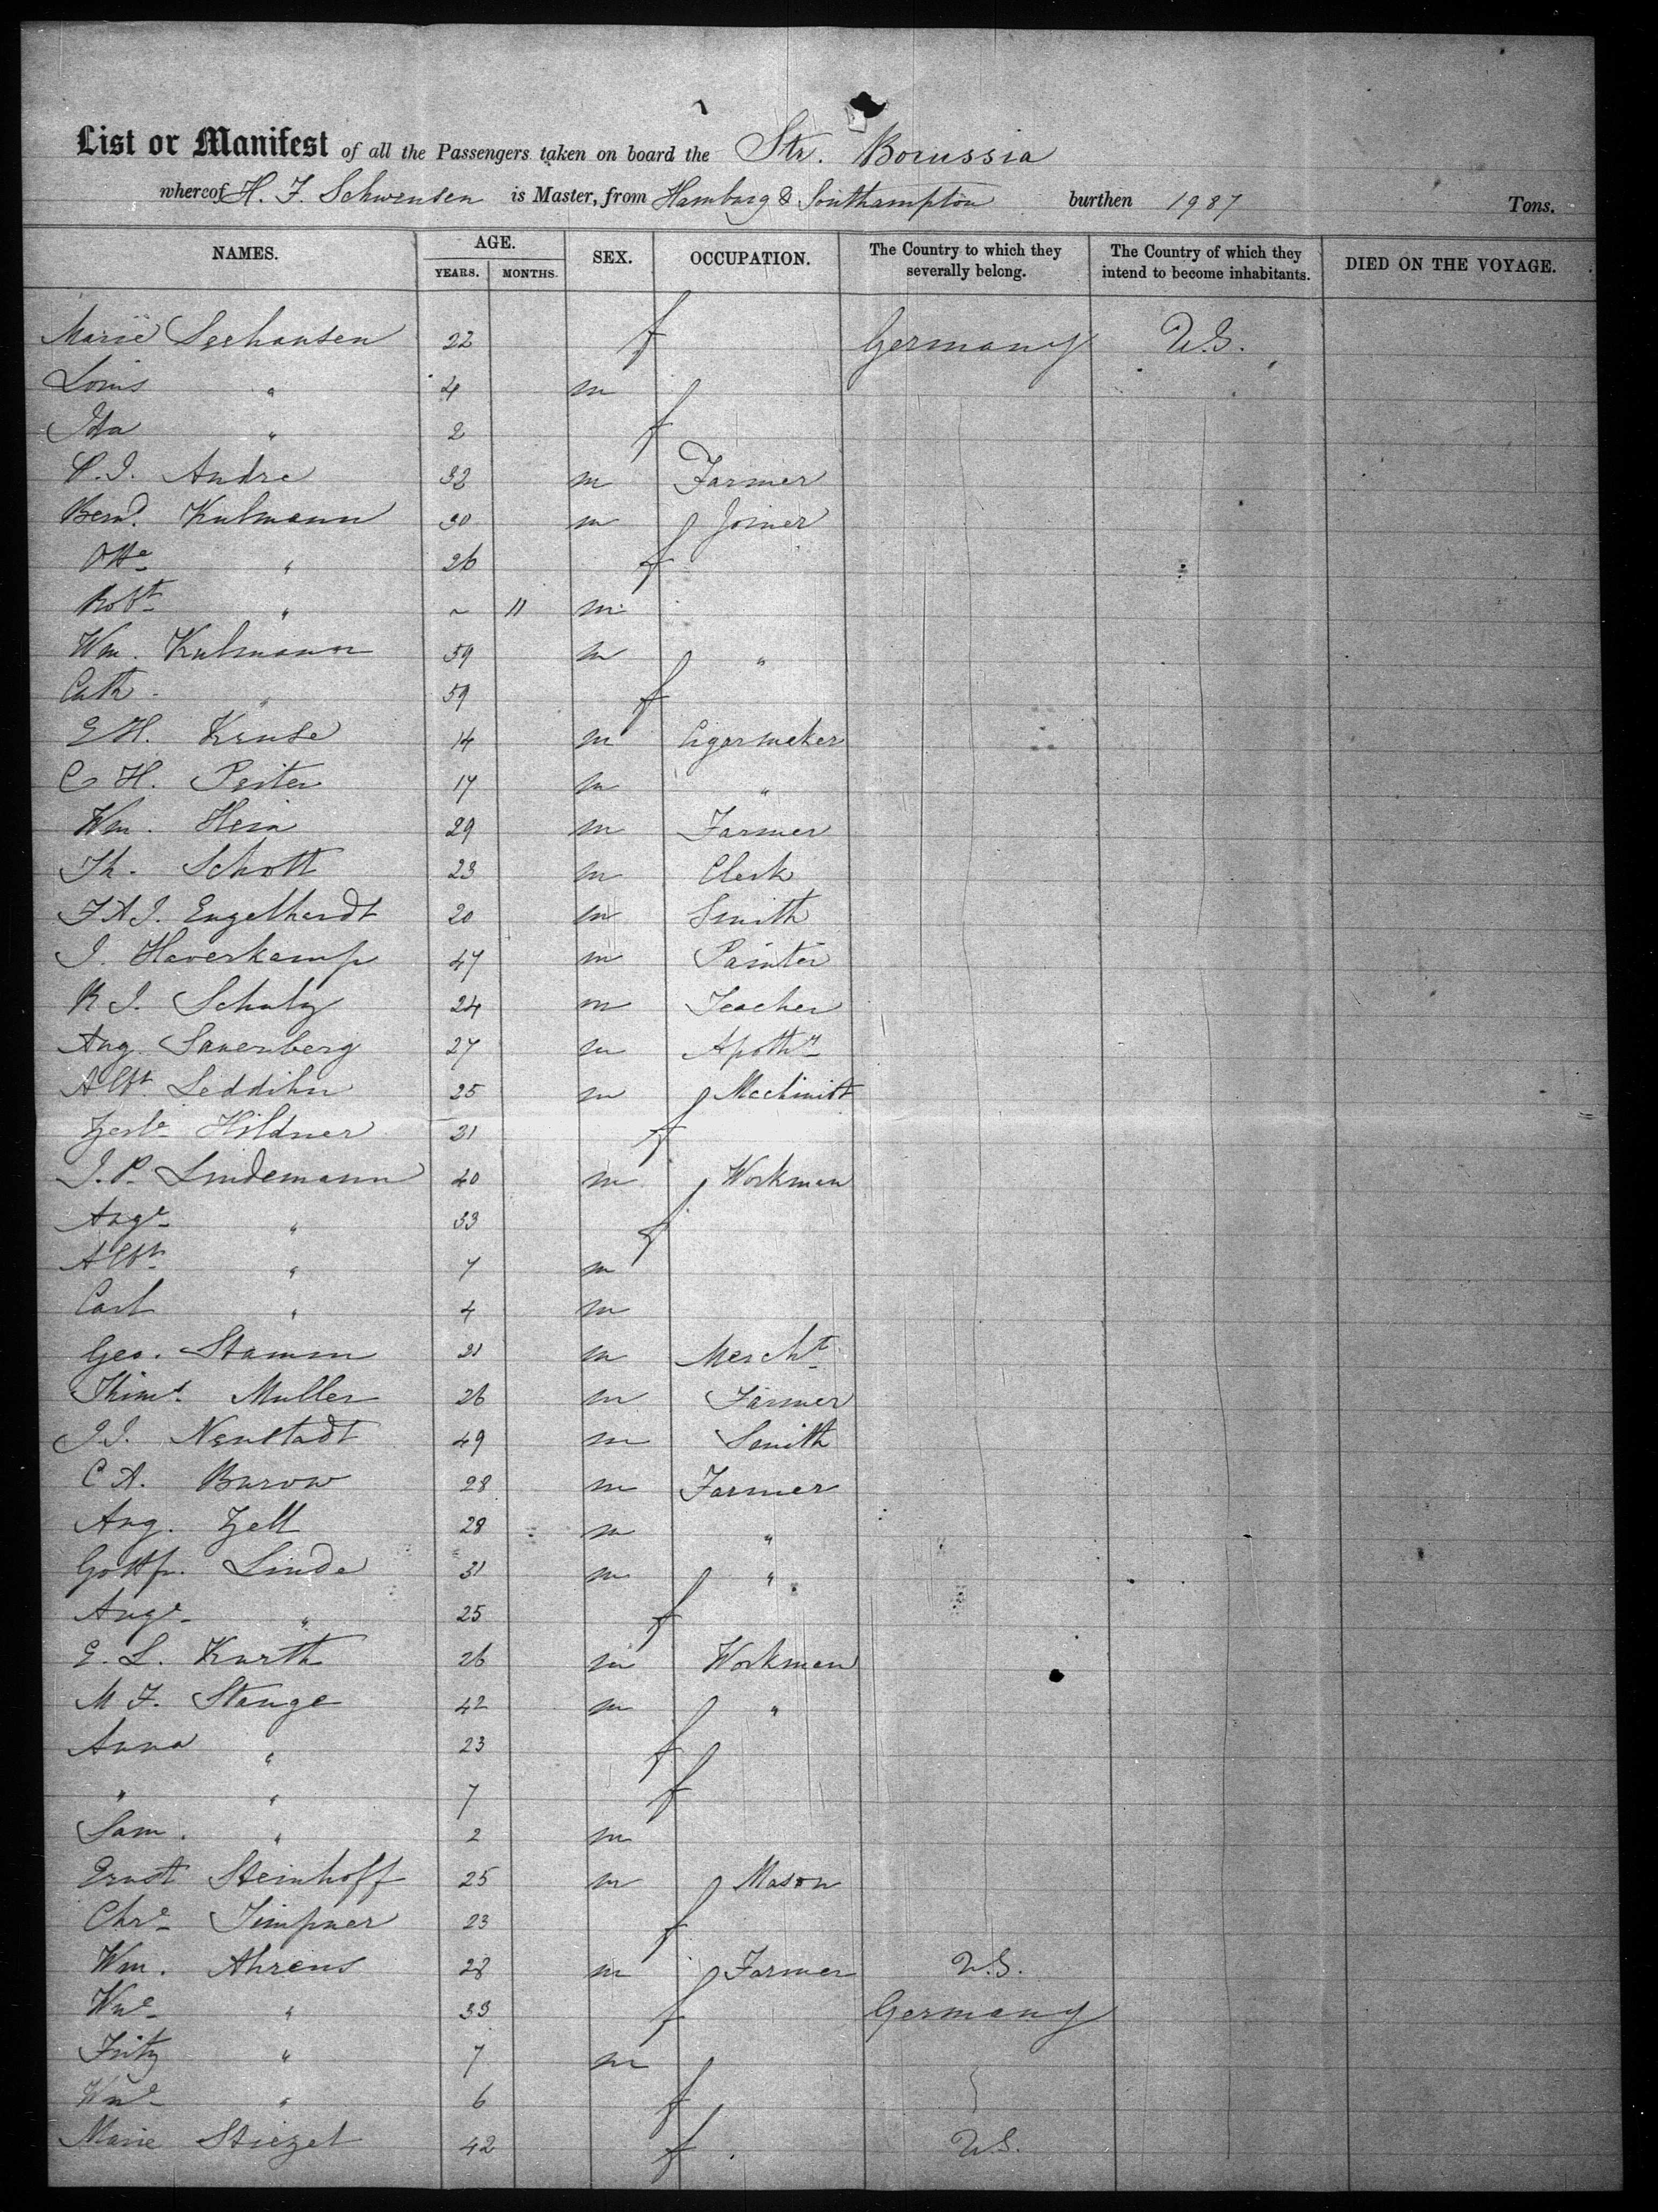 List or Manifest of all the Passengers taken on board the Str. Borussia
whereof H. F. Schwensen is Master, from Hamburg & Southampton burthen 1987 Tons.
NAMES. AGE. SEX. OCCUPATION. The Country to which they severally belong. The Country of which they intend to become inhabitants. DIED ON THE VOYAGE.
YEARS. MONTHS.
Marie Seehausen 22 f Germany U.S.
Louis " 4 m
Ida " 2 f
P. I. Andre 32 m Farmer
Bernd. Kulmann 30 m Joiner
Otte " 26 f
Robt " ~ 11 m
Wm. Kulmann 59 m "
Cath. " 59 f
E H. Kruse 14 m Cigarmaker
C H. Peiter 17 m "
Wm. Hein 29 m Farmer
Th. Schott 23 m Clerk
F A I. Engelhardt 20 m Smith
I. Haverkamp 47 m Painter
R I. Schulz 24 m Teacher
Aug. Sauerberg 27 m Apothy
Albt. Leddihn 25 m Machinist
Hildner 21 f
I. P. Lindemann 40 m Workman
Auge " 33 f
Albt " 7 m
Carl " 4 m
Geo. Stamm 21 m Mercht
Muller 26 m Farmer
I I. Neustadt 49 m Smith
C A. Burow 28 m Farmer
Aug. Zell 28 m "
Gottfr. Linde 31 m "
Auge " 25 f
E. L. Kurth 26 m Workman
M F. Stange 42 m "
Anna " 23 f
" " 7 f
Sam. " 2 m
Ernst Steinhoff 25 m Mason
Chre Timpner 23 f
Wm. Ahrens 28 m Farmer U.S.
Wme " 33 f Germany
Fritz " 7 m
Wme " 6 f
Marie Stiezel 42 f U.S.